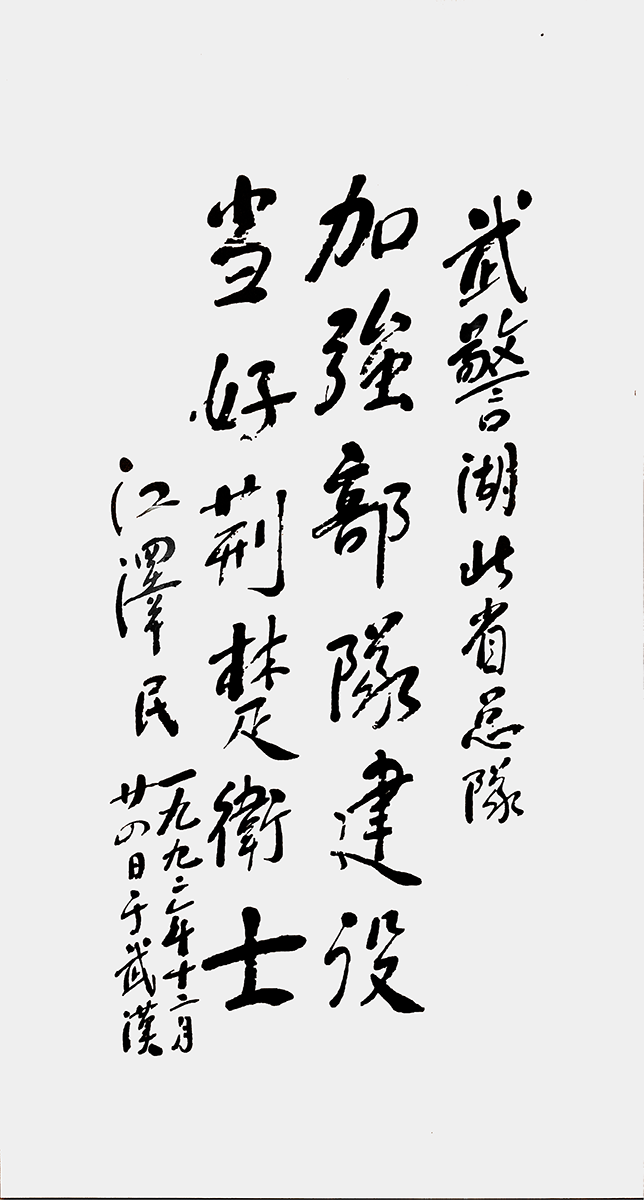 武警湖北省总隊
加強部隊建设
当好荆楚衛士
江澤民
一九九二年十二月
廿四日于武漢